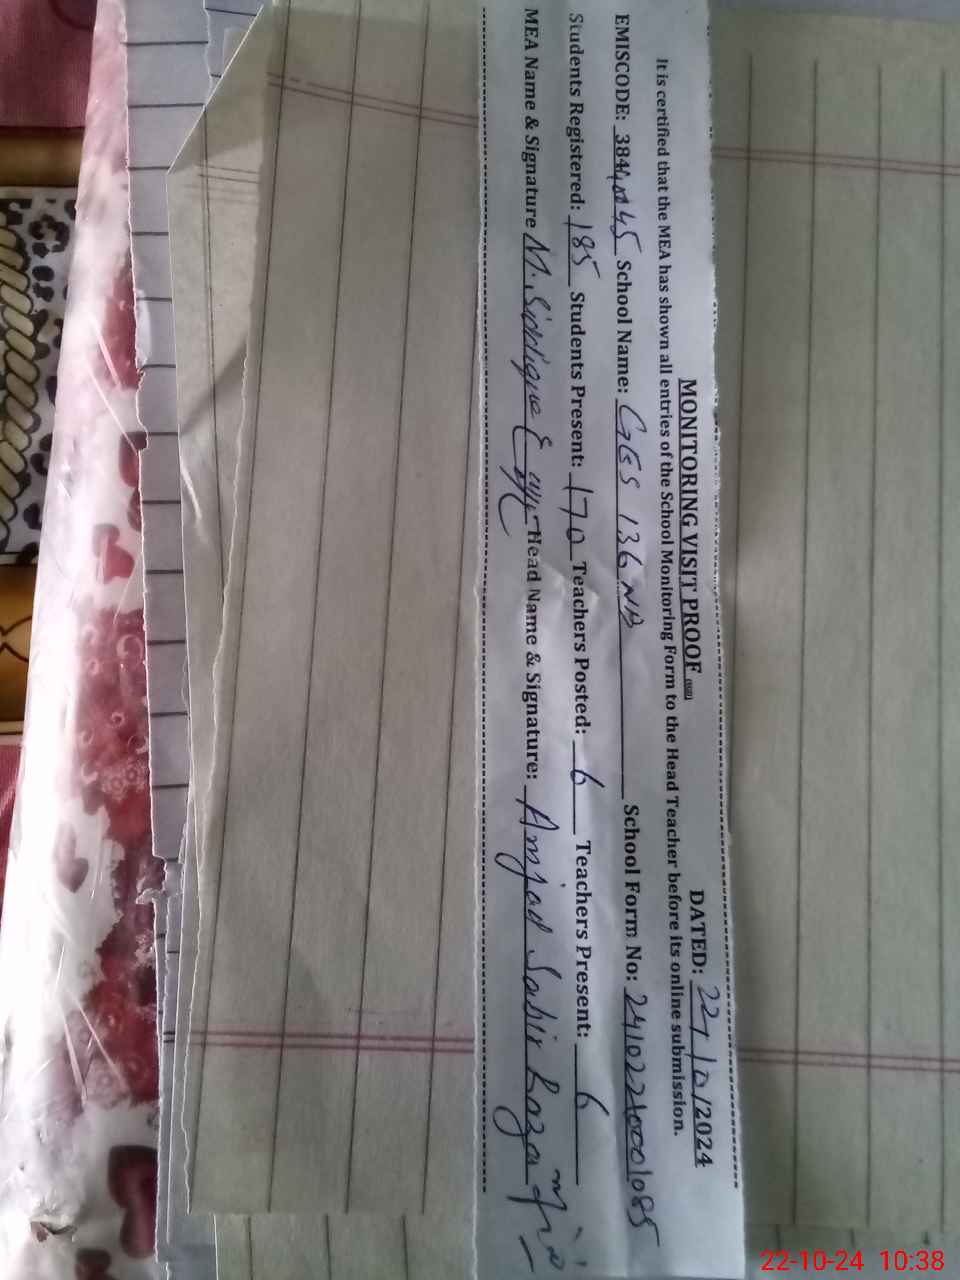 MONITORING VISIT PROOF
DATED: 22/10/2024
It is certified that the MEA has shown all entries of the School Monitoring Form to the Head Teacher before its online submission.
EMISCODE: School Name: GES 136 NB School Form No:
Students Registered: 185 Students Present: 170 Teachers Posted: 6 Teachers Present: 6
MEA Name & Signature M. Siddique Head Name & Signature: Amjad Sabir Raza
22-10-24 10:38